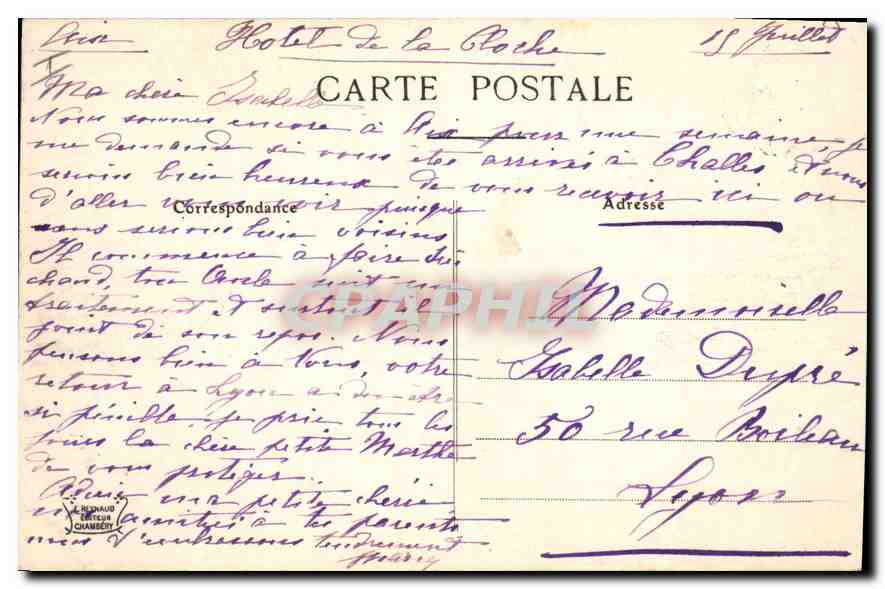 Aix Hotel de la Cloche 15 Juillet
CARTE POSTALE
Ma chère Isabelle
Nous sommes encore à Aix pour une semaine, je
me demande si vous êtes arrivés à Challes et nous
serions bien heureux de vous recevoir ici ou
d'aller vous voir puisque
nous serions bien voisins
Il commence à faire
chaud, ton Oncle suit un
traitement et surtout il
jouit de son repos. Nous
pensons bien à Vous, votre
retour à Lyon a dû être
si pénible, je prie tous les
jours la chère petite Marthe
de vous protéger.
Adieu ma petite chérie
amitiés à tes parents
nous t'embrassons tendrement
Correspondance
Adresse
Mademoiselle
Isabelle Dupré
50 rue Boileau
Lyon
L. REYNAUD
ÉDITEUR
CHAMBÉRY
CPAPHIL